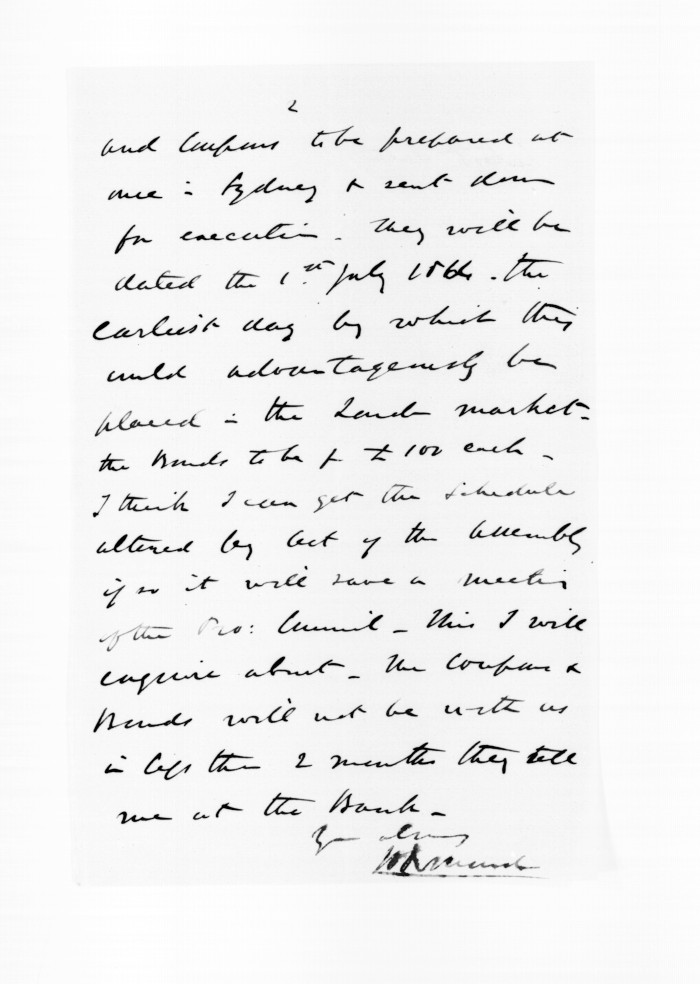 2
and Coupons to be prepared at
once in Sydney & sent down
for execution. They will be
dated the 1st July 1864. The
earliest day by which they
could advantageously be
placed in the Lond market.
the Bonds to be of £100 each.
I think I can get the Schedule
altered by Act of the Assembly
if so it will save a meetin
of the Pro: Council. This I will
enquire about. The Coupons &
Bonds will not be with us
in less than 2 months they tell
me at the Bank.
Yrs always